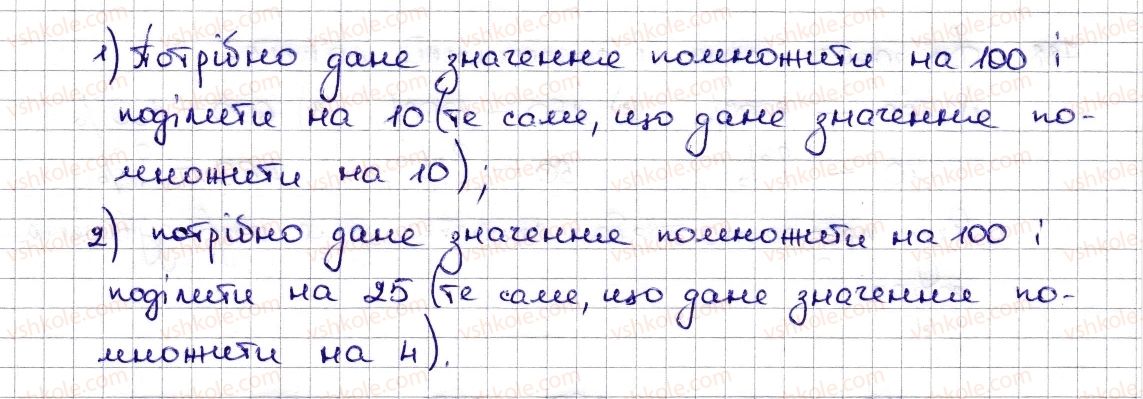 1) Потрібно дане значення помножити на 100 і
поділити на 10 (те саме, що дане значення по-
множити на 10);
2) потрібно дане значення помножити на 100 і
поділити на 25 (те саме, що дане значення по-
множити на 4).